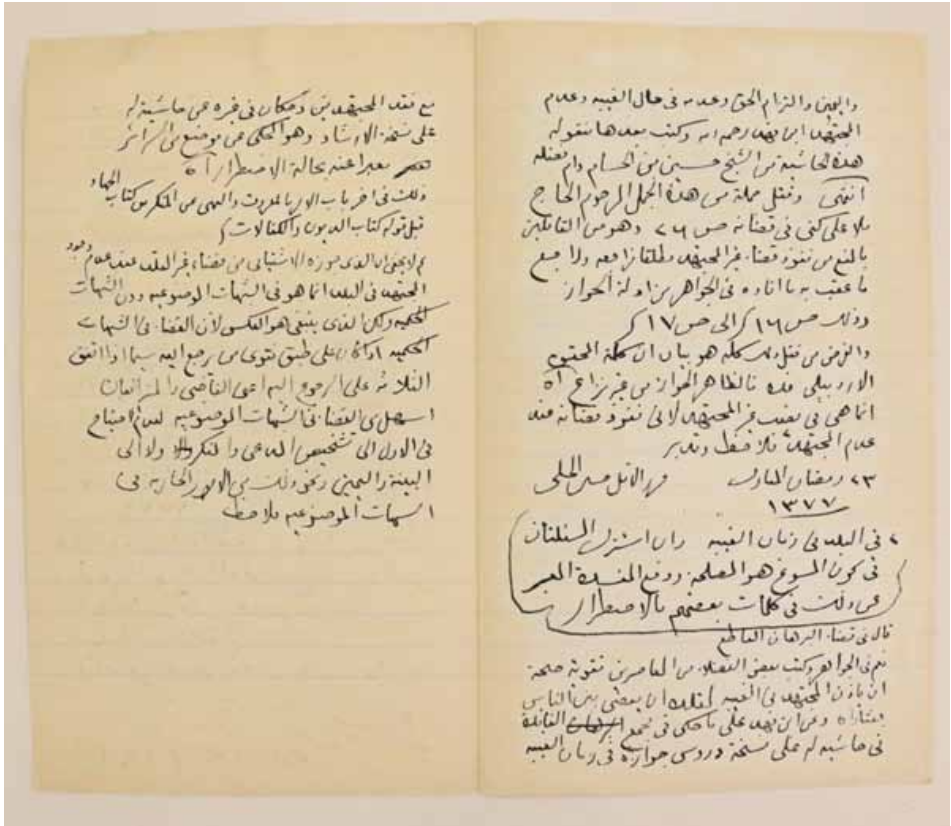 واليمين والتزام الحق وعدمه في حال الغيبه وعدم
المجتهد ابن فهد رحمه الله وكتب بعدها منقوله
هذه الحاشية من الشيخ حسين من الحسام دام فضله
انتهى ونقل جملة من هذه الجمل المرحوم الحاج
ملا علي كني في قضائه ص ٢٦ وهو من القائلين
بالمنع من نفوذ قضاء غير المجتهد مطلقا راجعه وراجع
ما عقب به ما افاده في الجواهر من ادلة الجواز
وذلك ص ١٦ الى ص ١٧
والغرض من نقل ذلك كله هو بيان ان كلمة المحقق
الاردبيلي قده فالظاهر الجواز من غير نزاع اه
انما هي في نصب غير المجتهد لا في نفوذ قضائه عند
عدم المجتهد فلاحظ وتدبر
٢٣ رمضان المبارك حرره الاقل حسين الحلي
١٣٧٧
في البلد في زمان الغيبه وان اشترك المسئلتان
في كون المسوغ هو المصلحة ودفع المفسدة المعبر
عن ذلك في كلمات بعضهم بالاضطرار
قال في قضاء البرهان القاطع
نعم في الجواهر وكتب بعض الفضلاء من المعاصرين تقوية صحة
ان ياذن المجتهد في الغيبه لمقلده ان يقضي بين الناس
بفتاواه وعن ابن فهد على ما حكى في مجمع الفائدة
في حاشية له على نسخة دروس جوازه في زمان الغيبه
مع فقد المجتهدين وحكاه في غيره عن حاشية له
على نسخة الارشاد وهو المحكي عن موضع من السرائر
معبرا عنه بحالة الاضطرار اه
وذلك في اخر باب الامر بالمعروف والنهي عن المنكر من كتاب الجهاد
قبل قوله كتاب الديون والكفالات
ثم لا يخفى ان الذي مورده الاستثنائي من قضاء غير المقلد عند عدم وجود
المجتهد في البلد انما هو في الشبهات الموضوعيه دون الشبهات
الحكميه ولكن الذي ينبغي هو العكس لأن القضاء في الشبهات
الحكميه اذا كان على طبق فتوى من يرجع اليه سيما اذا اتفق
الثلاثه على الرجوع اليه اعني القاضي والمترافعان
اسهل من القضاء في الشبهات الموضوعيه لعدم احتياج
في الاول الى تشخيص المدعي والمنكر ولا الى
البينة واليمين ونحو ذلك من الامور الجاريه في
الشبهات الموضوعيه فلاحظ